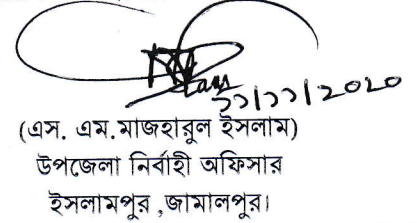 ১১/১১/২০২০
(এস. এম.মাজহারুল ইসলাম)
উপজেলা নির্বাহী অফিসার
ইসলামপুর ,জামালপুর।